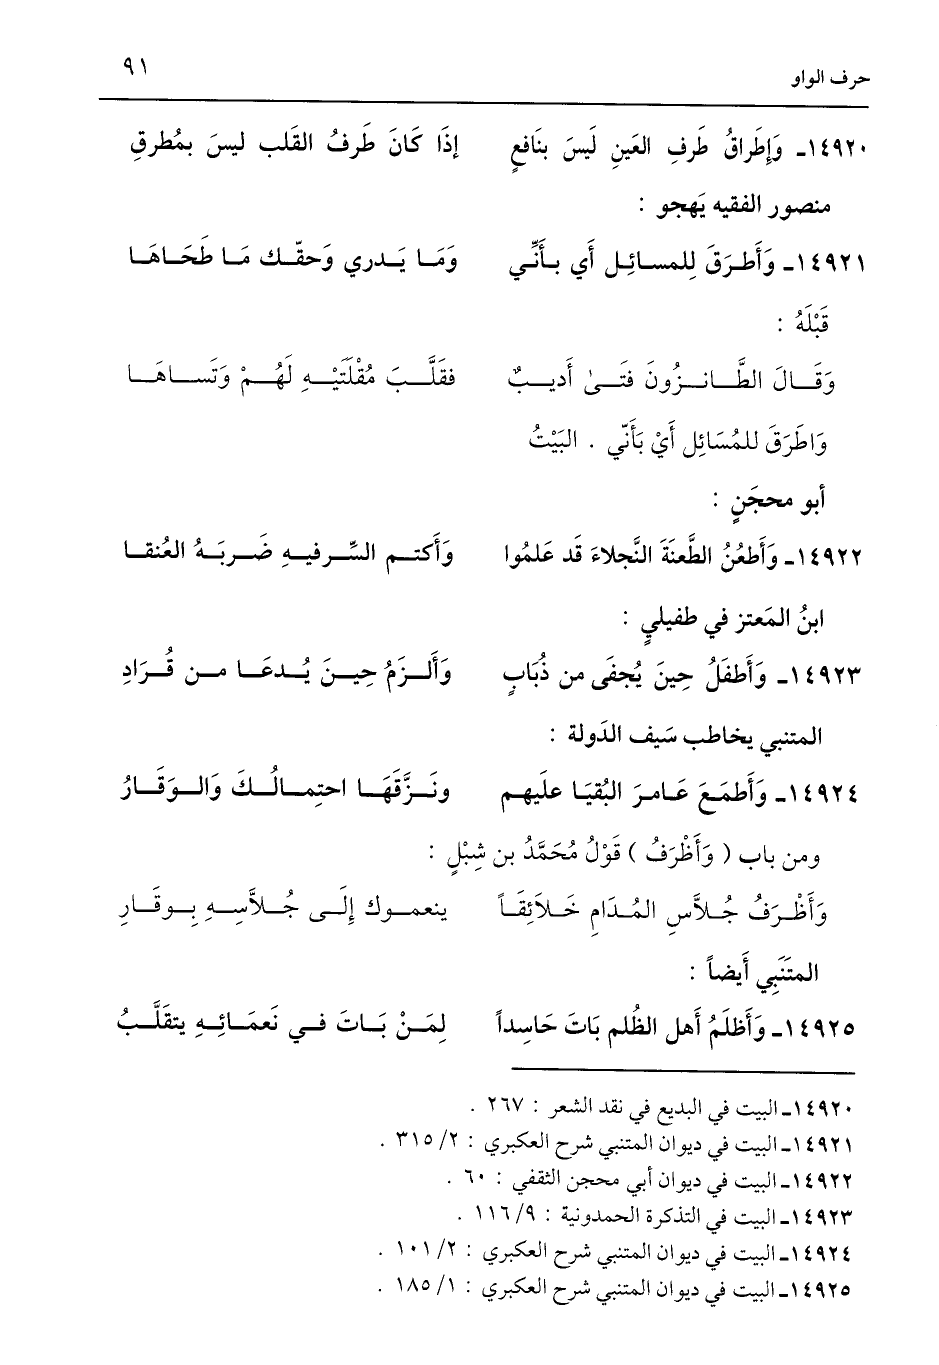 حرف الواو ٩١
١٤٩٢٠ـ وَإطَراقُ طَرفِ العَينِ لَيسَ بنَافعٍ إذَا كَانَ طَرفُ القَلب ليسَ بمُطرقِ
منصور الفقيه يَهجو :
١٤٩٢١ـ وَأَطرَقَ لِلمسائِل أي بأَنِّي وَمَا يَدري وَحقّك مَا طَحَاهَا
قَبْلَهُ :
وَقَالَ الطَّانزُونَ فَتَىٰ أَديبٌ فقَلَّبَ مُقْلَتَيْهِ لَهُمْ وَتَساهَا
وَاطَرَقَ للمُسَائِل أَيْ بَأَنّي . البَيْتُ
أبو محجَنٍ :
١٤٩٢٢ـ وَأَطعُنُ الطَّعنَةَ النَّجلاءَ قَد عَلمُوا وَأَكتم السِّرفيهِ ضَربَةُ العُنقا
ابنُ المَعتز في طفيليٍ :
١٤٩٢٣ـ وَأَطفَلُ حِينَ يُجفَى من ذُبَابٍ وَأَلزمُ حِينَ يُدعَا من قُرَادِ
المتنبي يخاطب سَيف الدَولة :
١٤٩٢٤ـ وَأَطمَعَ عَامرَ البُقيَا عليهم ونَزَّقَهَا احتِمالُكَ وَالوَقَارُ
ومن باب ( وَأَظْرَفُ ) قَوْلُ مُحَمَّدُ بن شِبْلٍ :
وَأَظْرَفُ جُلاَّسِ المُدَامِ خَلاَئِقَاً ينعموك إِلَى جُلاَّسِهِ بِوقَارِ
المتَنَبِي أَيضاً :
١٤٩٢٥ـ وَأَظلَمُ أَهل الظُلم بَاتَ حَاسِداً لِمَنْ بَاتَ في نَعمَائِهِ يتقَلَّبُ
١٤٩٢٠ـ البيت في البديع في نقد الشعر : ٢٦٧ .
١٤٩٢١ـ البيت في ديوان المتنبي شرح العكبري : ٢/ ٣١٥ .
١٤٩٢٢ـ البيت في ديوان أبي محجن الثقفي : ٦٠ .
١٤٩٢٣ـ البيت في التذكرة الحمدونية : ٩/ ١١٦ .
١٤٩٢٤ـ البيت في ديوان المتنبي شرح العكبري : ٢/ ١٠١ .
١٤٩٢٥ـ البيت في ديوان المتنبي شرح العكبري : ١/ ١٨٥ .